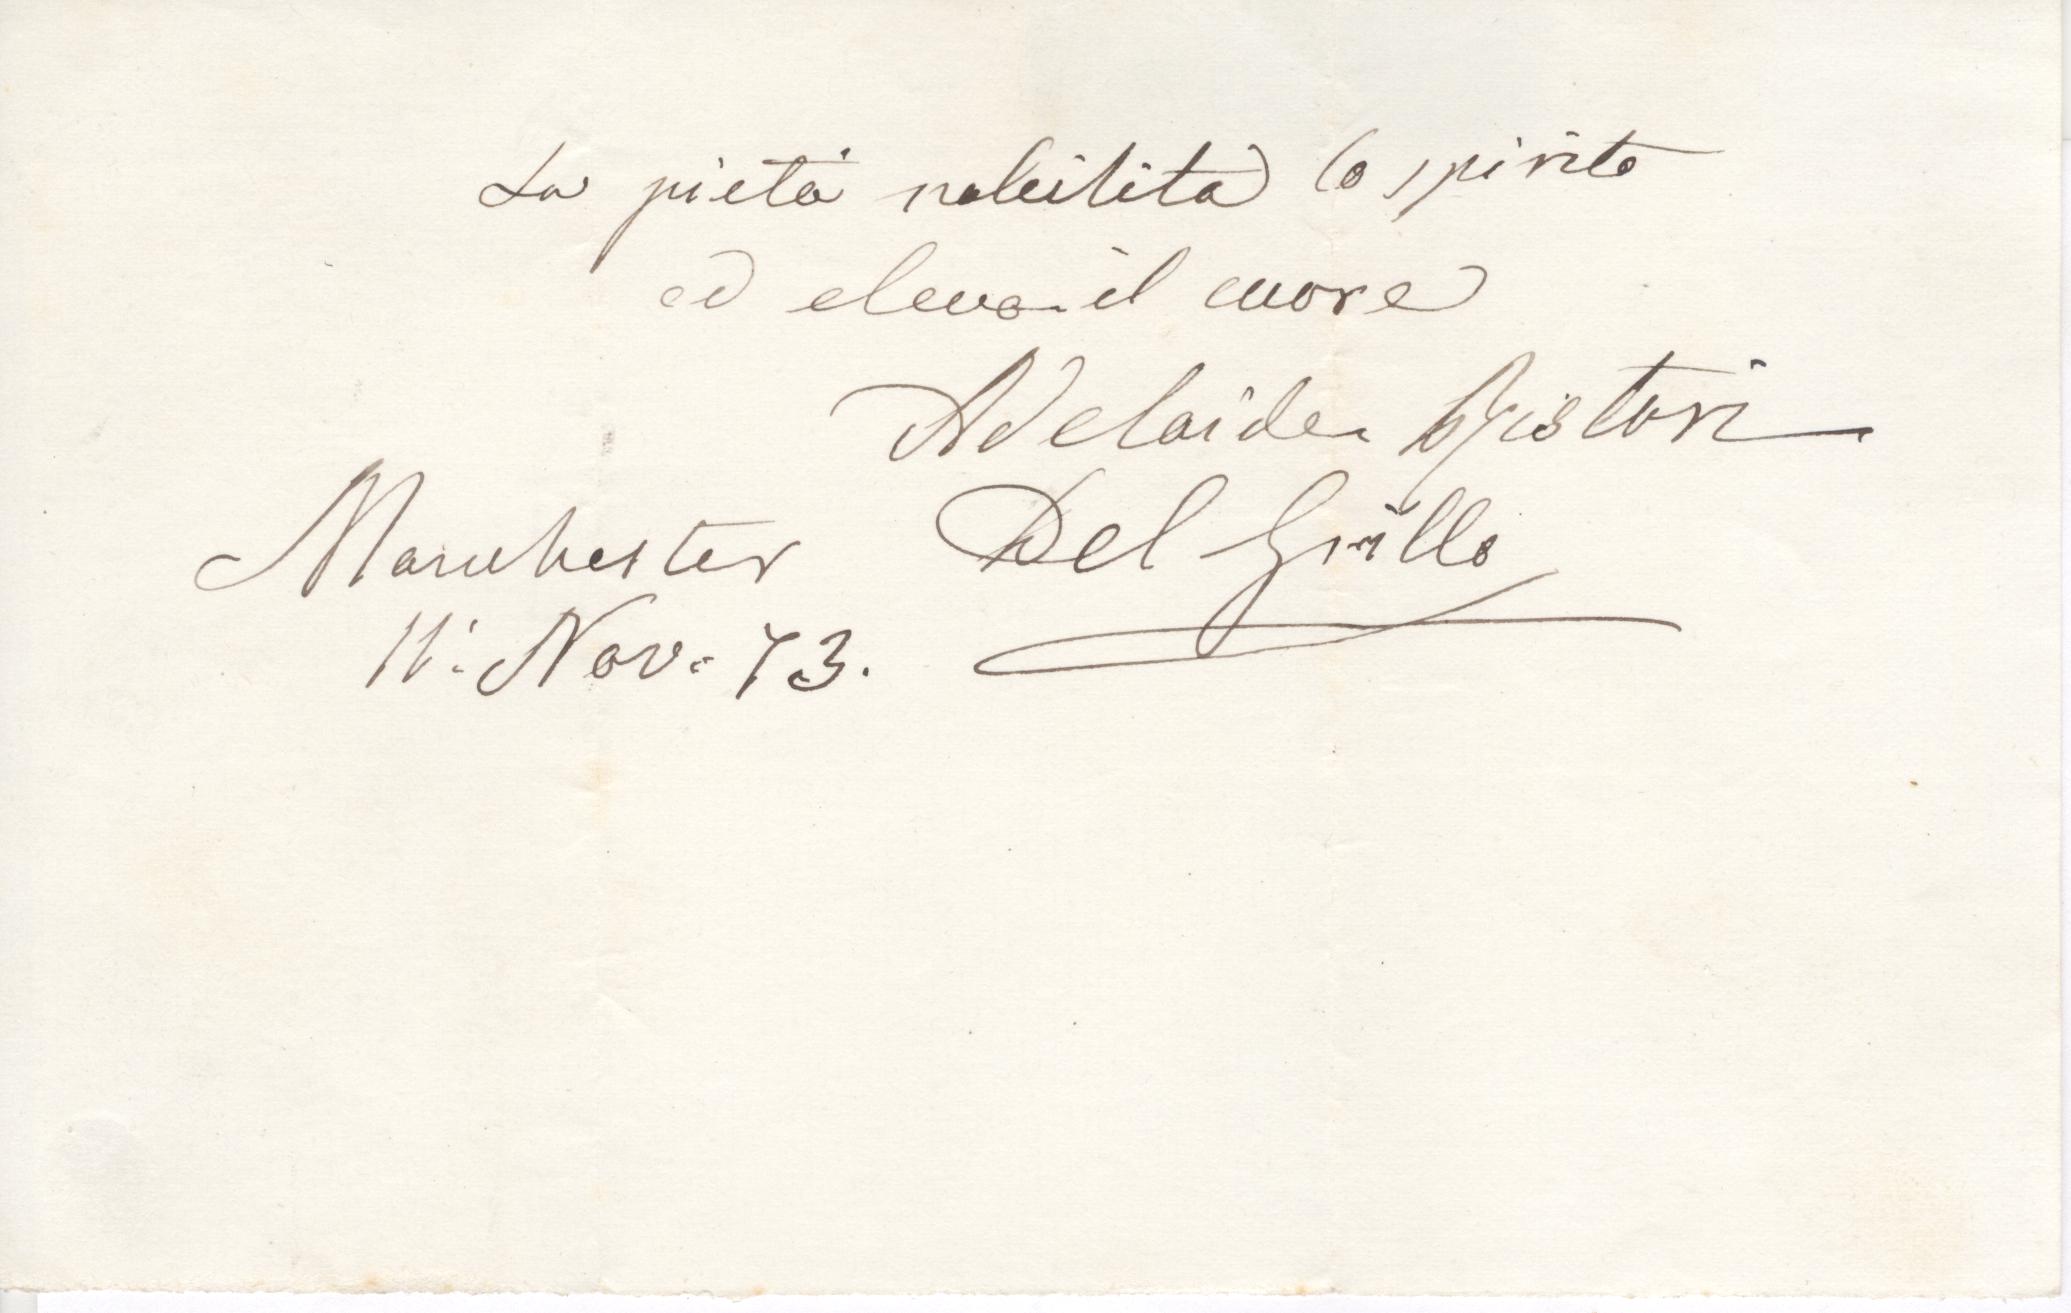 La pietà nobilita lo spirito
ed eleva il cuore
Adelaide Ristori
Del Grillo
Manchester
11. Nov. 73.